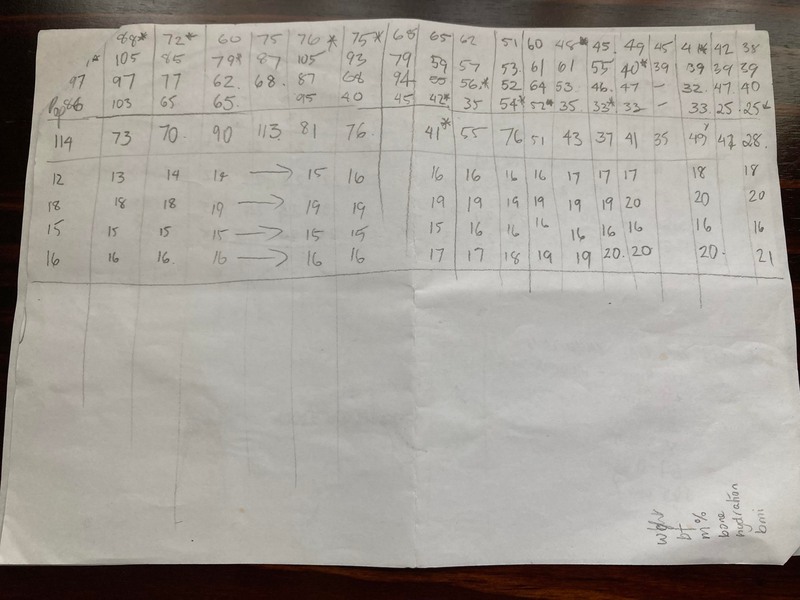 88* 72* 60 75 76* 75* 68 65 62 51 60 48* 45. 49 45 41* 42 38
1* 105 85 79* 87 105 93 79 59 57 53. 61 61 55 40* 39 39 39 39
97 97 77 62. 68. 87 68 94 55 56.* 52 64 53. 46. 47 - 32. 47. 40
86 103 65 65. 95 40 45 42* 35 54* 52* 35 33* 33 - 33 25. 25*
114 73 70. 90 113 81 76. 41* 55 76 51 43 37 41 35 49 47 28.
12 13 14 14 → 15 16 16 16 16 16 17 17 17 18 18
18 18 18 19 → 19 19 19 19 19 19 19 19 20 20 20
15 15 15 15 → 15 15 15 16 16 16 16 16 16 16 16
16 16 16. 16 → 16 16 17 17 18 19 19 20. 20 20. 21
bf
m %
bone
hydration
bmi